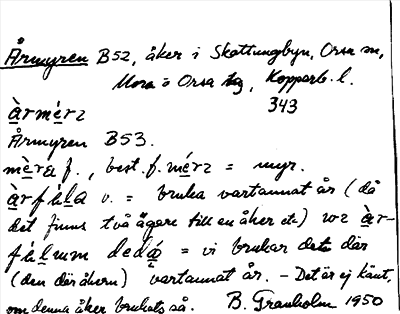 Årmyren B52, åker i Skattungbyn, Orsa sn,
Mora o Orsa tg, Kopparb. l.
343
àrmérz
Årmyren B53.
mèra f., best. f. mérz = myr.
àrfála v. = bruka vartannat år (då
det finns två ägare till en åker etc)
= vi brukar det där
(den där åkern) vartannat år. – Det är ej känt,
om denna åker brukats så. B. Granholm 1950